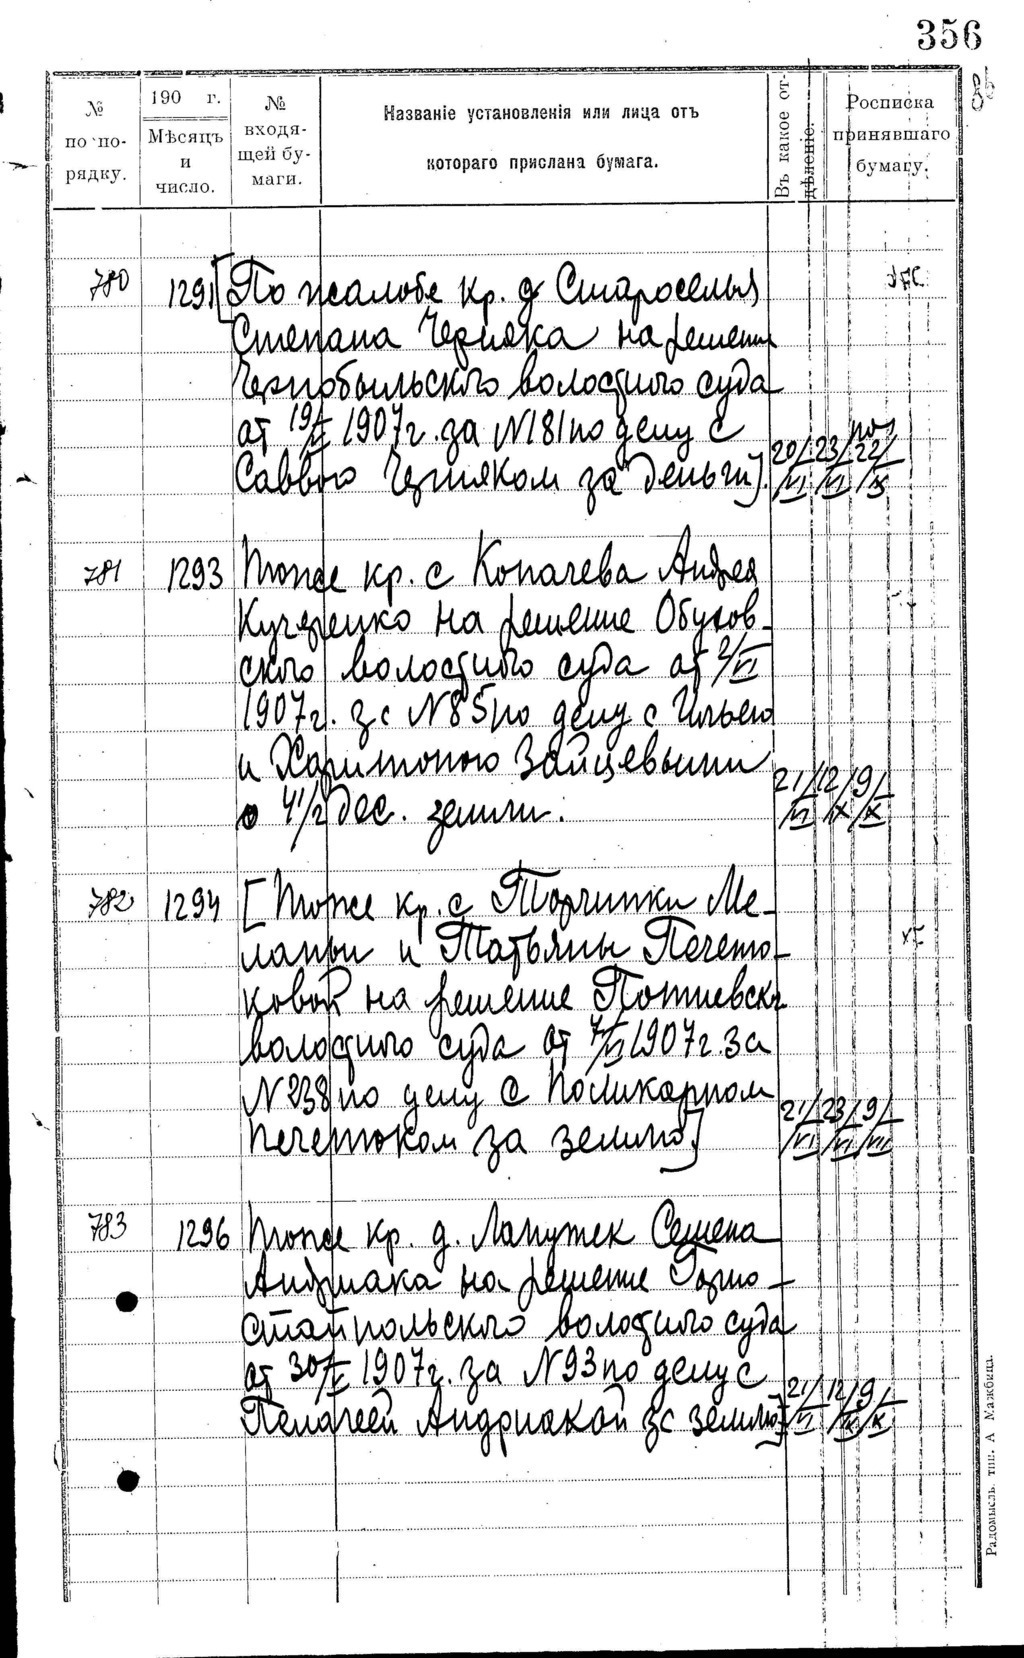 356
№ по по-рядку.
190 г.
Мѣсяцъ и число.
№ входя-щей бу-маги.
Названіе установленія или лица отъ
котораго прислана бумага.
Въ какое от-дѣленіе.
Росписка принявшаго бумагу.
780 1291 [По жалобе кр. д Староселья
Степана Черняка на решение
Чернобыльского волостного суда
от 19/V 1907г. за N181 по делу с
Саввою Черняком за деньги]. 20/VI 23/VI 22/IX
781 1293 Тоже кр. с Копачева Андрея
Кучеренко на решение Обухов-
ского волостного суда от 2/VI
1907г. за N85 по делу с Ильею
и Харитоною Зайцевыми
о 4 1/2 дес. земли. 21/VI 12/IX 9/X
782 1294 [Тоже кр. с Торчинки Ме-
лании и Татьяны Печето-
ковой на решение Потиевск
волостного суда от 7/VI 1907г за
N238 по делу с Поликарпом
Печетоком за землю] 21/VI 23/VI 9/VII
783 1296 Тоже кр. д. Лапутек Семена
Андриака на решение Горно-
стайпольского волостного суда
от 30/V 1907г. за N93 по делу с
Пелагеей Андриакой за землю] 21/VI 12/IX 9/X
Радомысль. тип. А Мажбица.